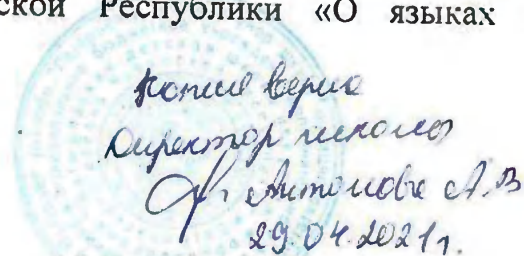 ской Республики «О языках
копия верна
Директор школы
Антонова А.В
29.04.2021г.